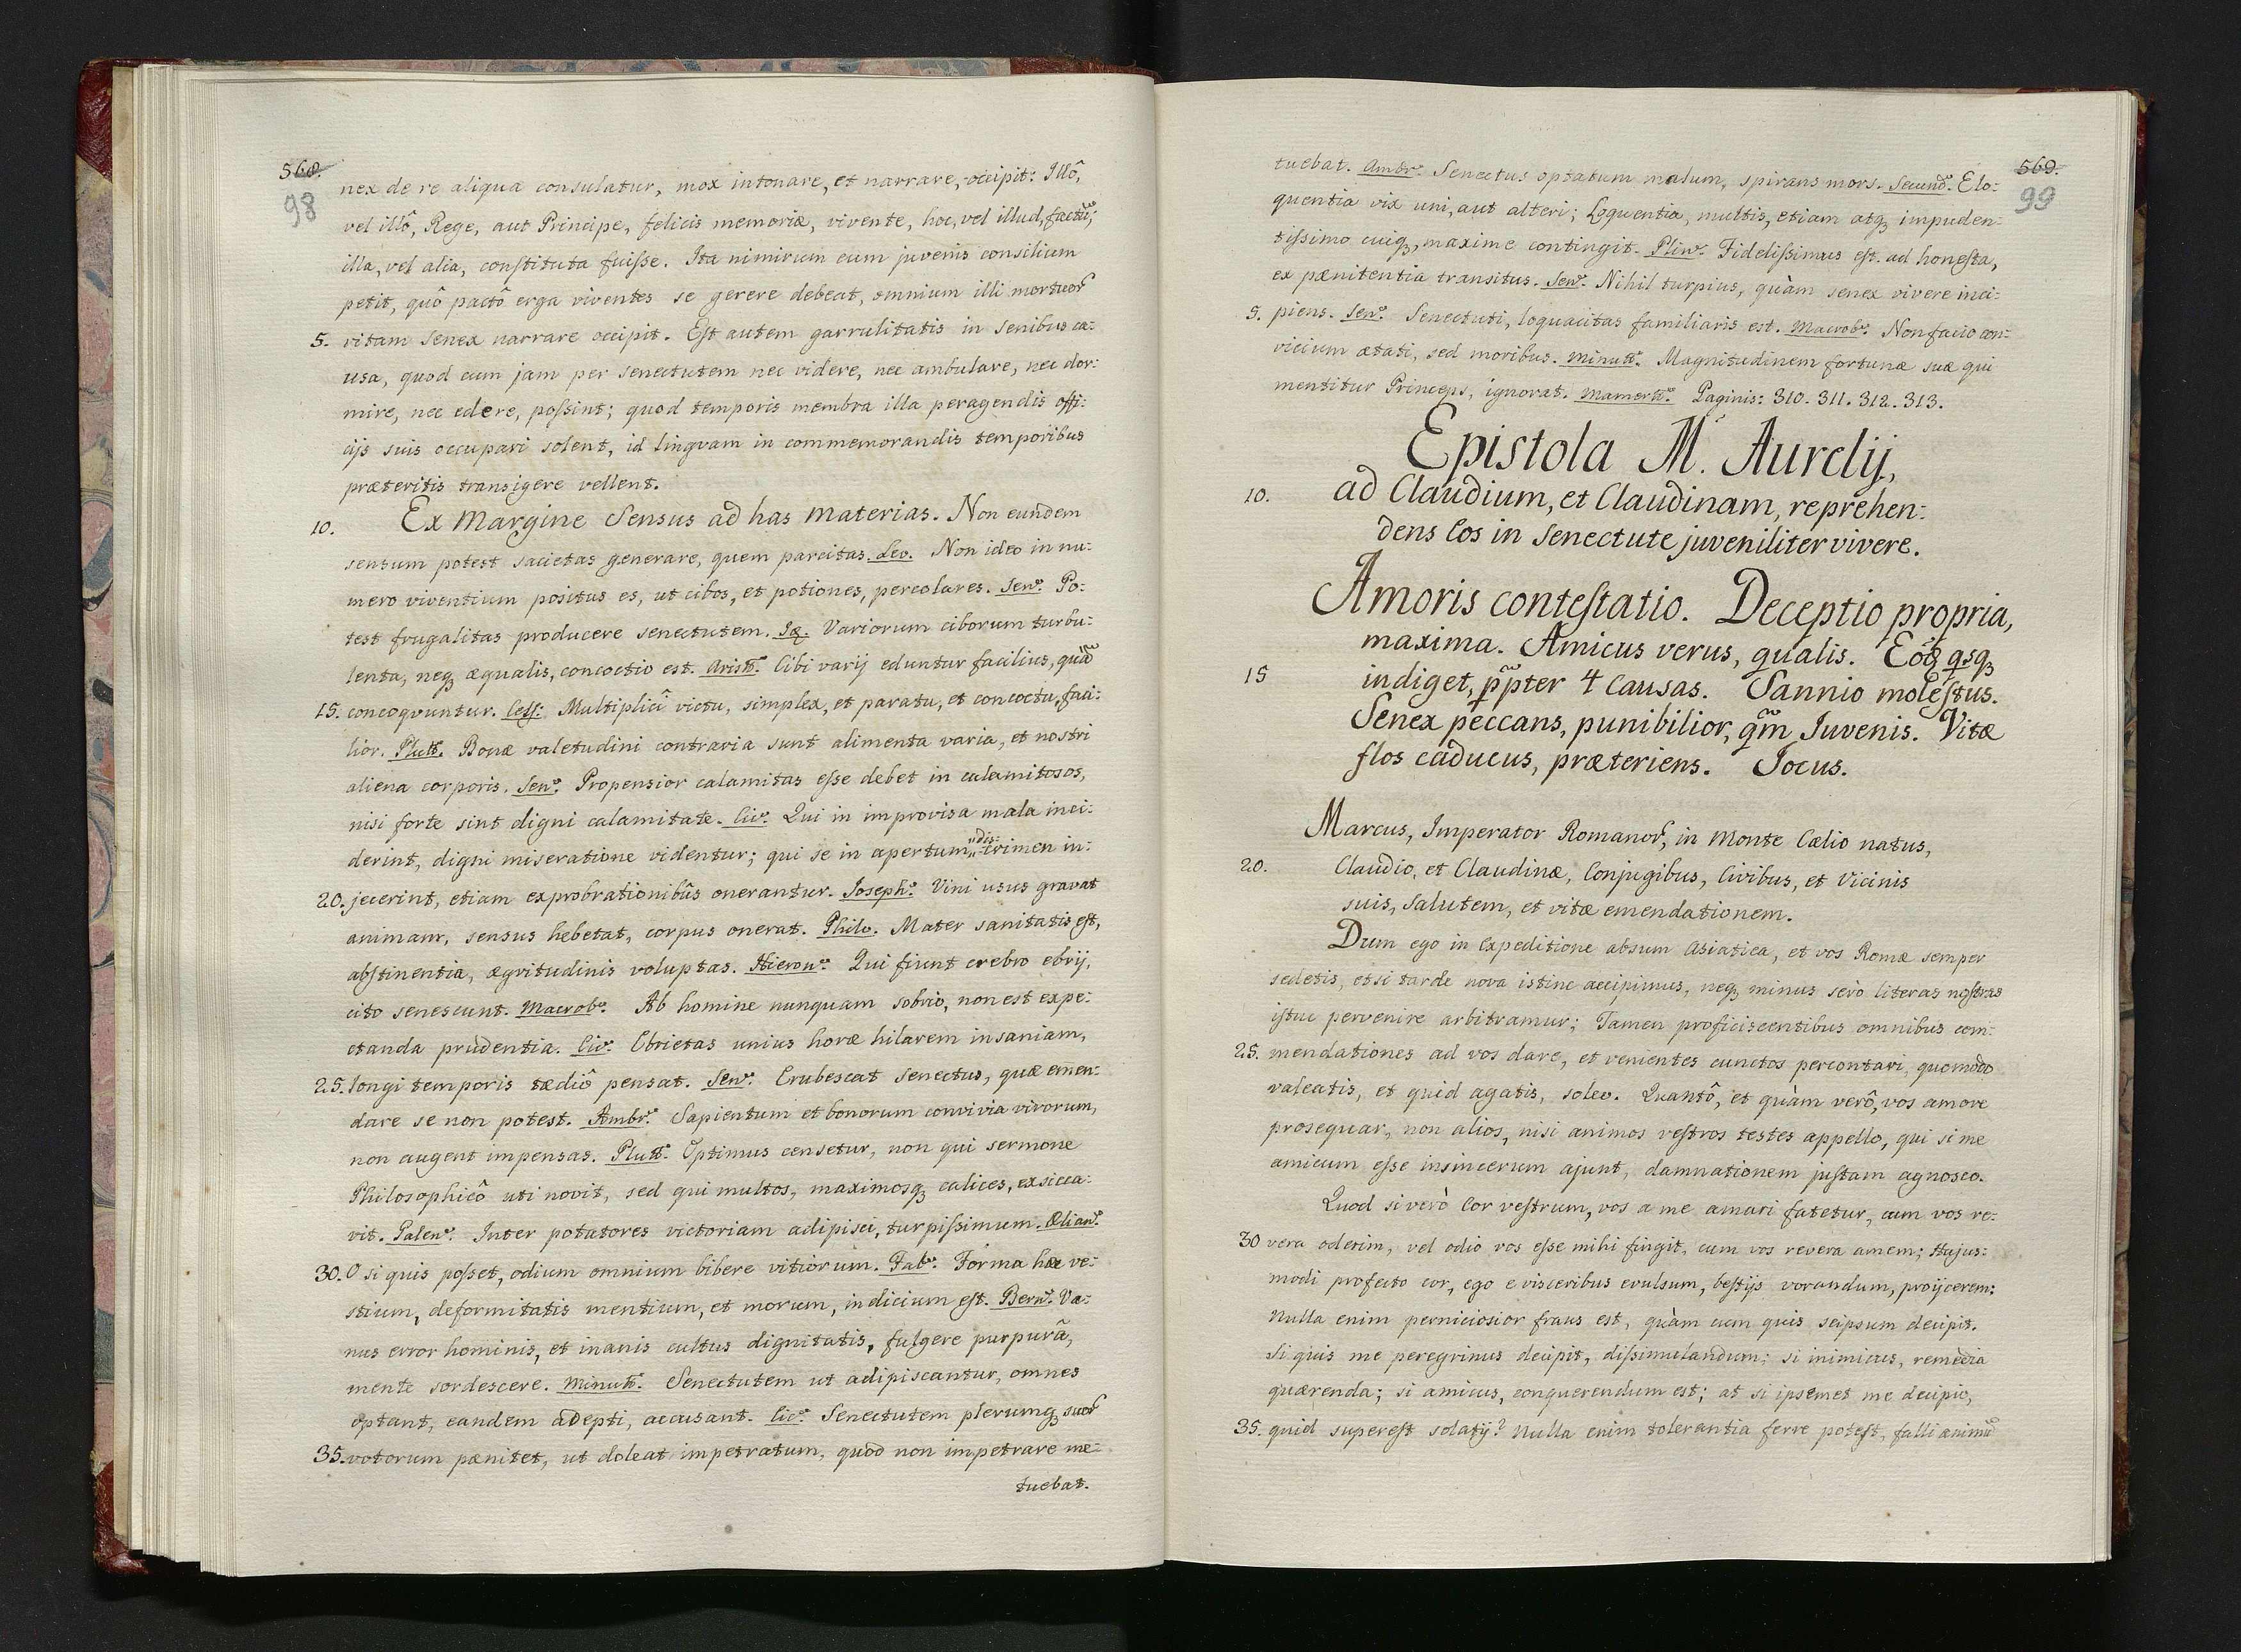 568.
98
nex de re aliqua consulatur, mox intonare, et narrare, occipit: Illô,
vel illô, Rege, aut Principe, felicis memoriæ, vivente, hoc, vel illud, factũ;
illa, vel alia, constituta fuisse. Ita nimirum cum juvenis consilium
petit, quô pactô erga viventes se gerere debeat, omnium illi mortuor̃
5. vitam senex narrare occipit. Est autem garrulitatis in senibus ca:
usa, quod cum jam per senectutem nec videre, nec ambulare, nec dor:
mire, nec edere, possint; quod temporis membra illa peragendis offi:
cijs suis occupari solent, id lingvam in commemorandis temporibus
præteritis transigere vellent.
10. Ex Margine Sensus ad has materias. Non eundem
sensum potest sacietas generare, quem parcitas. Leo. Non ideo in nu:
mero viventium positus es, ut cibos, et potiones, percolares. Sen: Po:
test frugalitas producere senectutem. Iq. Variorum ciborum turbu:
lenta, neq, æqualis, concoctio est. Arist: Cibi varij eduntur facilius, quã
15. concoqvuntur. Cels: Multiplici victu, simplex, et paratu, et concoctu, faci:
lior. Plut. Bonæ valetudini contraria sunt alimenta varia, et nostri
aliena corporis. Sen: Propensior calamitas esse debet in calamitosos,
nisi forte sint digni calamitate. Civ: Qui in improvisa mala inci:
derint, digni miseratione videntur; qui se in apertum "dis: crimen in:
20. jecerint, etiam exprobrationibus onerantur. Joseph: Vini usus gravat
animam, sensus hebetat, corpus onerat. Philo. Mater sanitatis est,
abstinentia, ægritudinis voluptas. Hieron: Qui fiunt crebro ebrij,
cito senescunt. Macrob: Ab homine nunquam sobrio, non est expe:
ctanda prudentia. Civ: Ebrietas unius horæ hilarem insaniam,
25. longi temporis tædiô pensat. Sen: Erubescat Senectus, quæ emen:
dare se non potest. Ambr: Sapientum et bonorum convivia virorum,
non augent impensas. Plut: Optimus censetur, non qui sermone
Philosophicô uti novit, sed qui multos, maximosq, calices, exsicca:
vit. Palen: Inter potatores victoriam adipisci, turpissimum. Ælian:
30. O si quis posset, odium omnium bibere vitiorum. Fab: Forma hæc ve:
stium, deformitatis mentium, et morum, indicium est. Bern: Va:
nus error hominis, et inanis cultus dignitatis, fulgere purpurâ,
mente sordescere. Minut: Senectutem ut adipiscantur, omnes
optant, eandem adepti, accusant. Cic: Senectutem plerumq, suor̃
35. votorum pænitet, ut doleat impetratum, quod non impetrare me:
tuebat.
569.
99
tuebat. Ambr: Senectus optatum malum, spirans mors. Secund: Elo:
quentia vix uni, aut alteri; Loquentia, multis, etiam atq, impuden:
tissimo cuiq, maxime contingit. Plin: Fidelissimus est ad honesta,
ex pænitentia transitus. Sen: Nihil turpius, quàm senex vivere inci:
5. piens. Sen: Senectuti, loquacitas familiaris est. Macrob: Non facio con:
vicium ætati, sed moribus. Minut: Magnitudinem fortunæ suæ qui
mentitur Princeps, ignorat. Mamert: Paginis: 310. 311. 312. 313.
Epistola M. Aurelij,
10. ad Claudium, et Claudinam, reprehen:
dens Eos in Senectute juveniliter vivere.
Amoris contestatio. Deceptio propria,
maxima. Amicus verus, qualis. Eoq, qsq,
15 indiget, p̃pter 4 Causas. Sannio molestus.
Senex peccans, punibilior, qm̃ Juvenis. Vitæ
flos caducus, præteriens. Jocus.
Marcus, Imperator Romanor̃, in Monte Cælio natus,
20. Claudio, et Claudinæ, Conjugibus, Civibus, et Vicinis
suis, Salutem, et vitæ emendationem.
Dum ego in Expeditione absum Asiatica, et vos Romæ semper
sedetis, etsi tarde nova istinc accipimus, neq, minus serò literas nostras
istuc pervenire arbitramur; Tamen proficiscentibus omnibus com:
25. mendationes ad vos dare, et venientes cunctos percontari, quomodo
valeatis, et quid agatis, soleo. Quantô, et quàm verô, vos amore
prosequar, non alios, nisi animos vestros testes appello, qui si me
amicum esse insincerum ajunt, damnationem justam agnosco.
Quod si verò Cor vestrum, vos a me amari fatetur, cum vos re:
30 vera oderim, vel odio vos esse mihi fingit, cum vos revera amem; Hujus:
modi profecto cor, ego e visceribus evulsum, bestijs vorandum, projicerem:
Nulla enim perniciosior fraus est, quàm cum quis seipsum decipit.
Si quis me peregrinus decipit, dissimulandum; si inimicus, remedia
quærenda; si amicus, conquerendum est; at si ipsemet me decipio,
35. quid superest solatij? Nulla enim tolerantia ferre potest, falli animũ